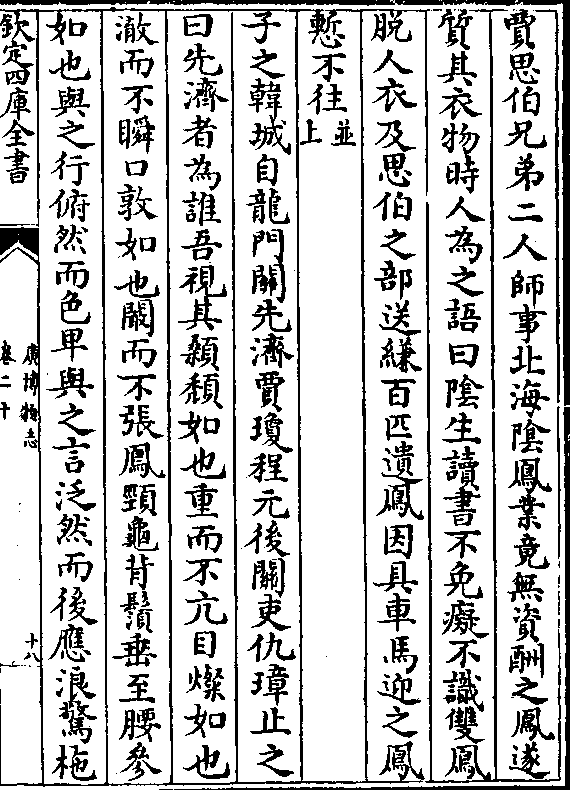 賈思伯兄弟二人師事北海陰鳳業竟無資酬之鳳遂
質其衣物時人為之語曰陰生讀書不免癡不識雙鳳
脱人衣及思伯之部送縑百匹遺鳳因具車馬迎之鳳
慙不往並上
子之韓城自龍門關先濟賈瓊程元後關吏仇璋止之
曰先濟者為誰吾視其顙頹如也重而不亢目燦如也
澈而不瞬口敦如也闞而不張鳳頸龜背鬚垂至腰參
如也與之行俯然而色卑與之言泛然而後應浪驚柂
欽定四庫全書
廣博物志
卷二十
十八